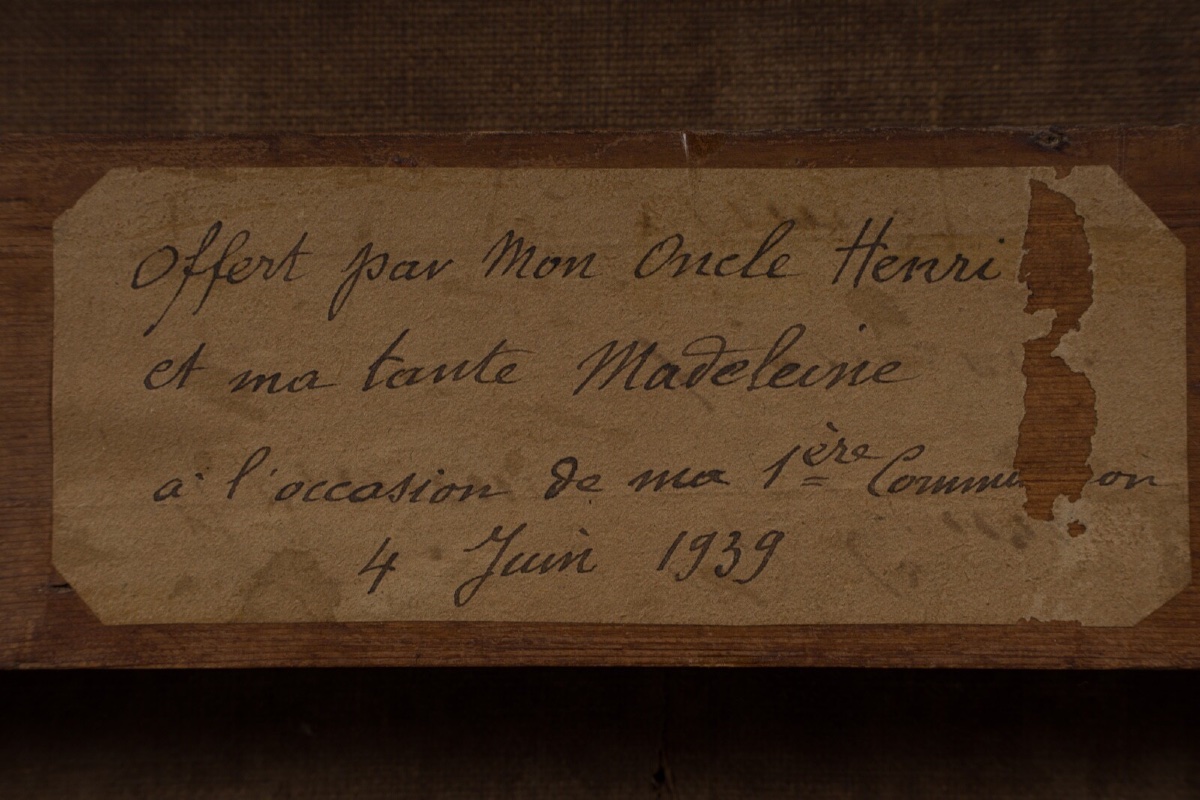 Offert par Mon Oncle Henri
et ma tante Madeleine
à l'occasion de ma 1ère
4 Juin 1939